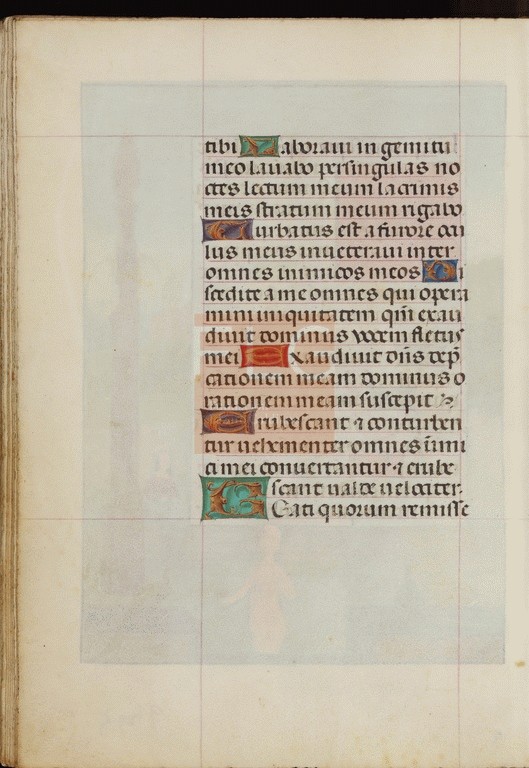 tibi Laboraui in gemitu
meo lauabo persingulas no
ctes lectum meum lacrimis
meis stratum meum rigabo
Turbatus est a furore ocu
lus meus inueteraui inter
omnes inimicos meos Di
scedite a me omnes qui opera
mini iniquitatem qm̄ exau
diuit dominus vocem fletus
mei Exaudiuit dn̄s dep̄
cationem meam dominus o
rationem meam suscepit
Erubescant ⁊ conturben
tur uehementer omnes inimi
ci mei conuertantur ⁊ erube
scant ualde uelociter.
BEati quorum remisse